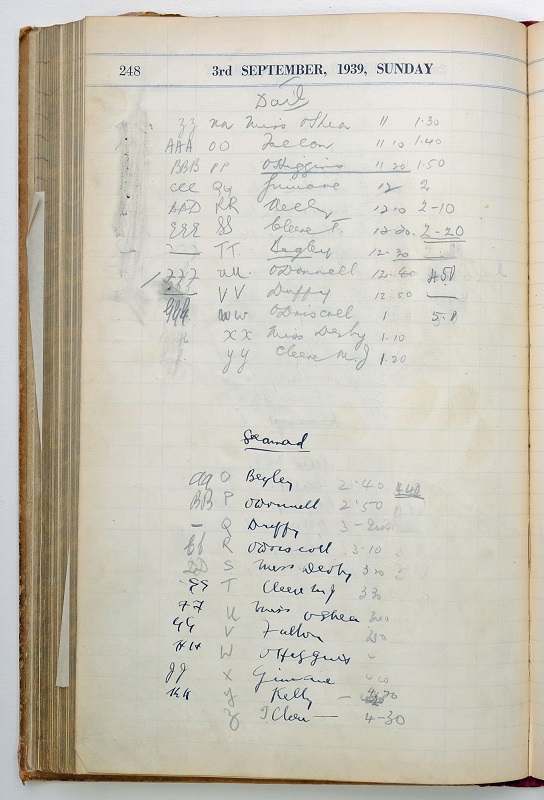 248 3rd SEPTEMBER, 1939, SUNDAY
Dail
zz nn Miss O'Shea 11 1.30
AAA OO Fallon 11 10 1.40
BBB PP O'Higgins 11 20 1.50
ccc Qq 12 2
DDD RR Kelly 12.10 2-10
EEE SS Cleere T. 12.20. 2-20
TT. Begley 12-30
uu. O'Donnell 12.40
VV Duffy 12.50
GGG ww O'Driscoll 1 5.
xx Miss Derby 1.10
yy Cleere M.J 1.20
Seanad
O Begley 2.40 4.40
BB P O'Donnell 2.50
- Q Duffy 3-
R O'Driscoll 3.10
DD S Miss Derby 3 20
T Cleere M J 3 30
FF U Miss O'Shea
GG V Fallon
HH W O'Higgins
JJ X
KK Y Kelly -
Z - 4-30